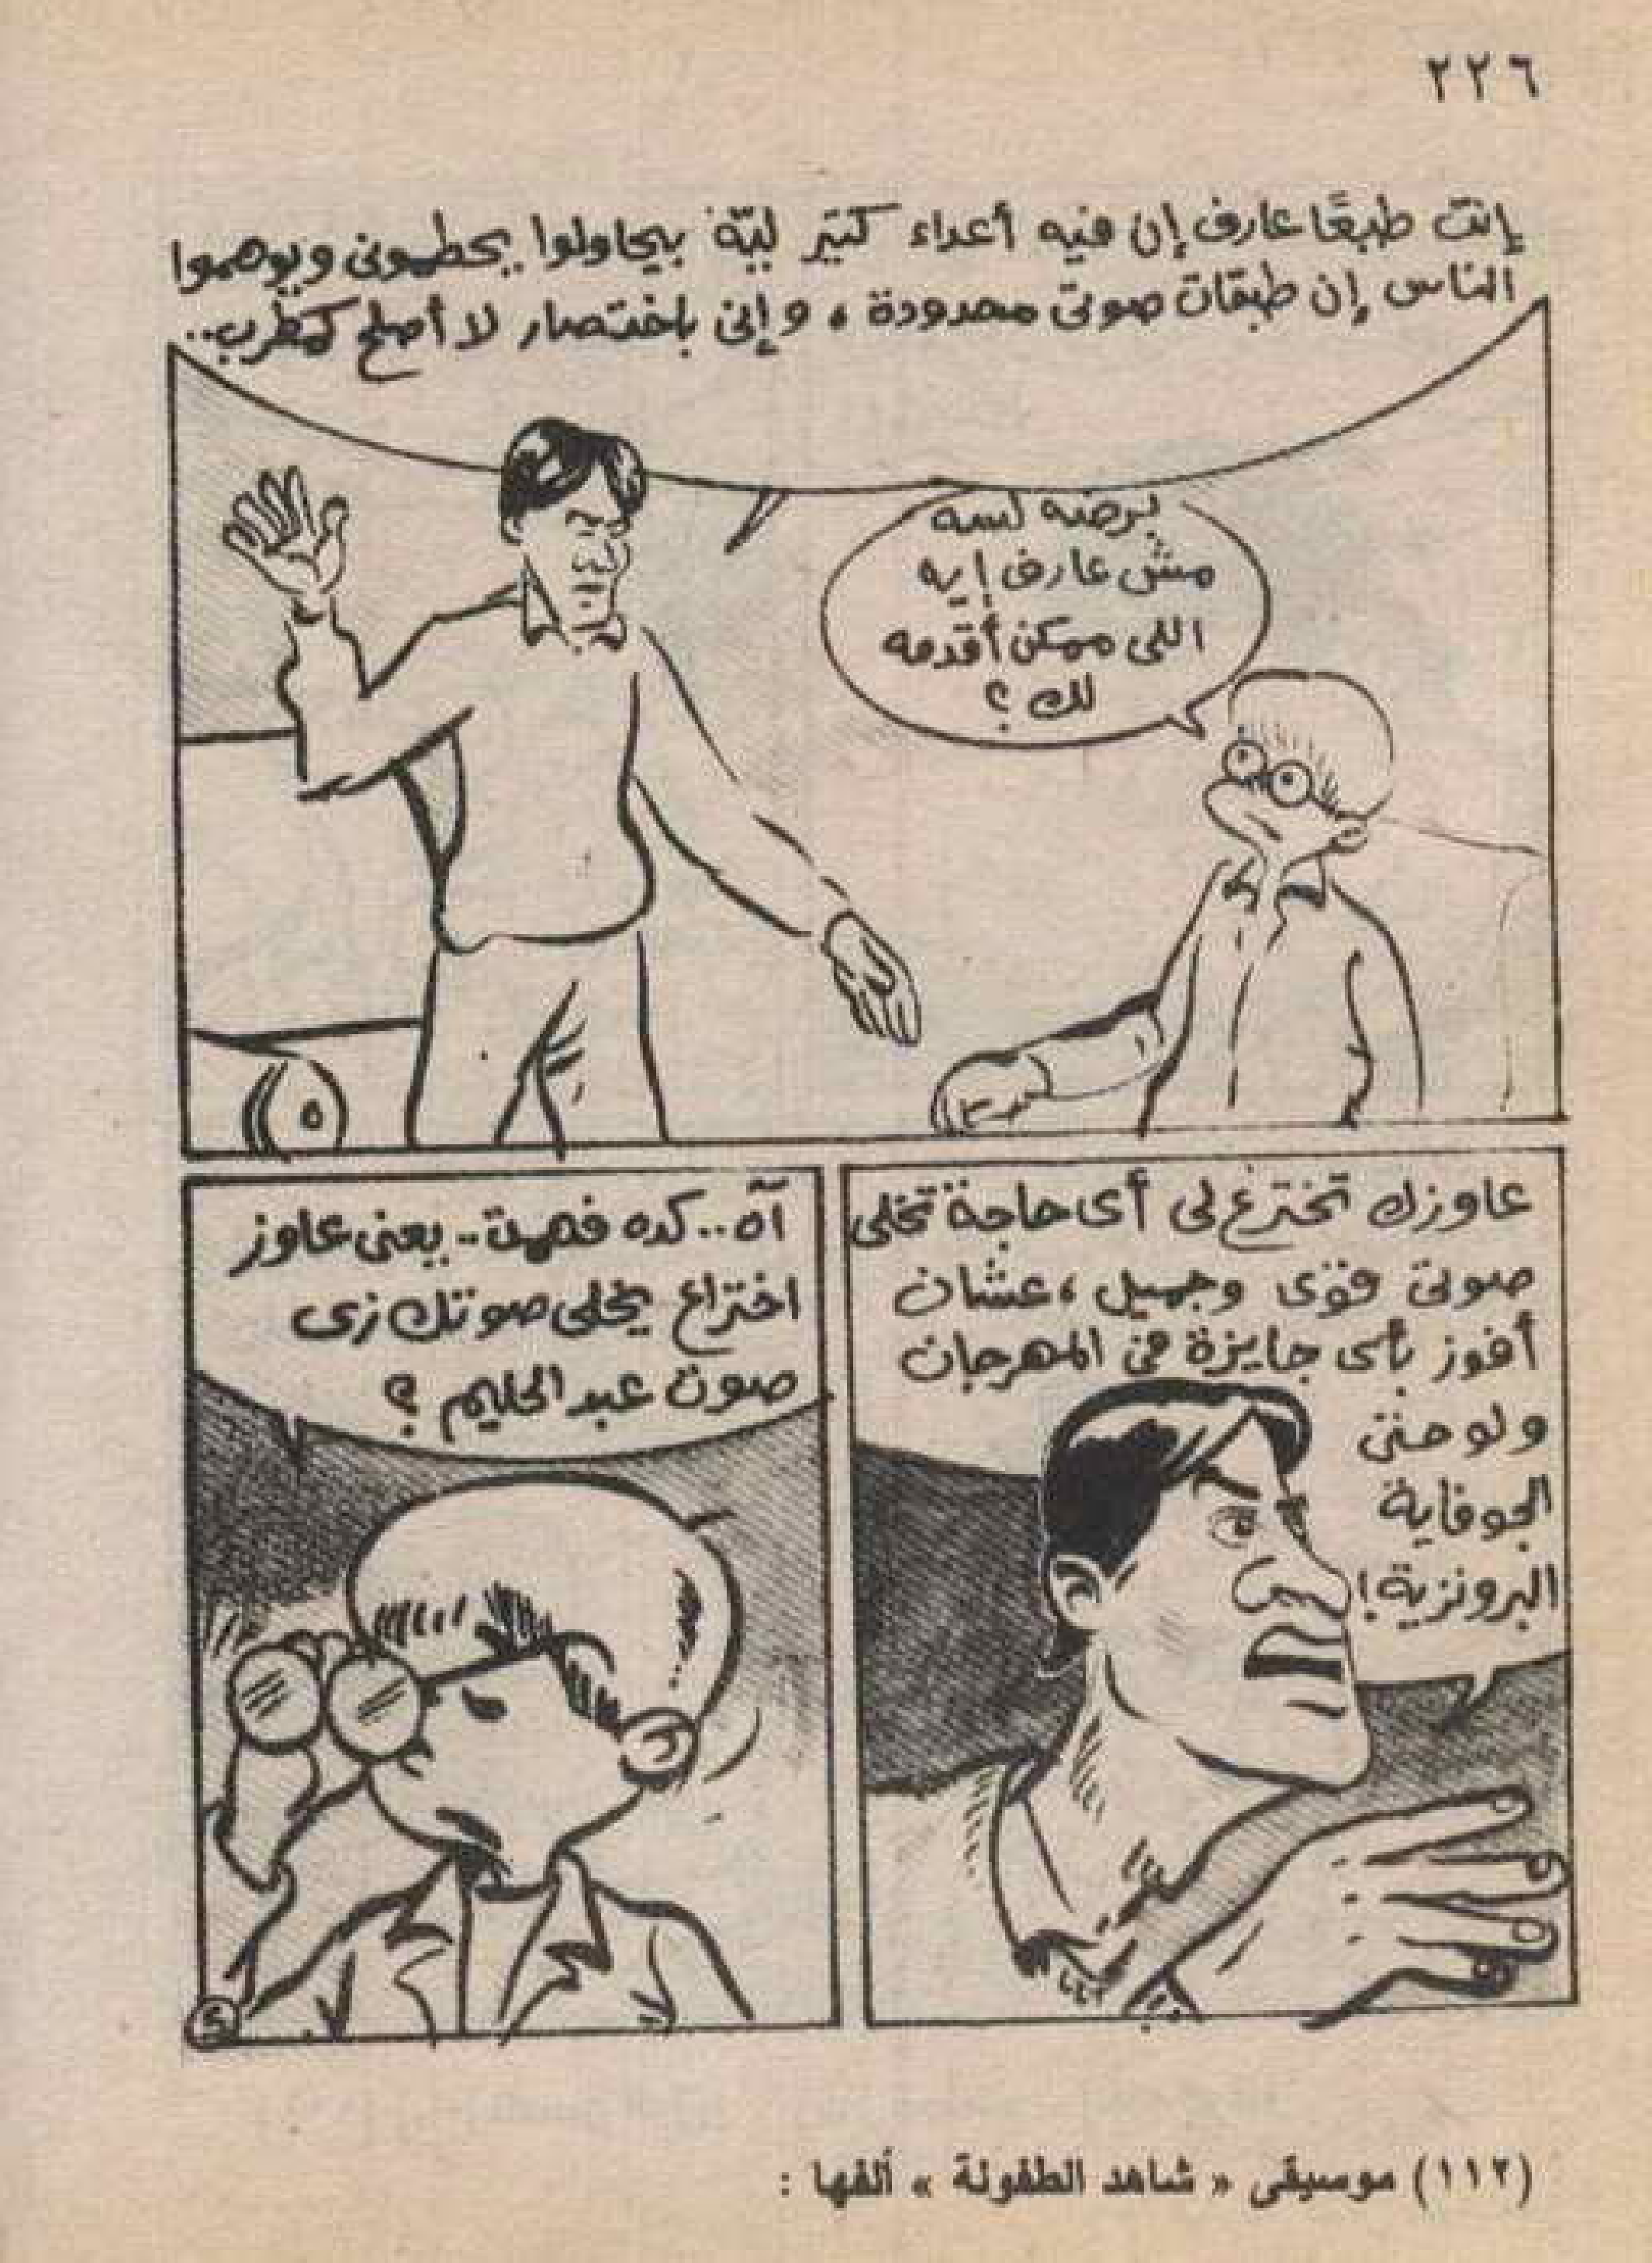 ٢٢٦
إنت طبعًا عارف إن فيه أعداء كتير ليّه بيحاولوا يحطمونى ويوهموا
الناس إن طبقات صوتى محدودة، وإنى باختصار لا أصلح كمطرب..
برضه لسه
مش عارف إيه
اللى ممكن أقدمه
لك؟
عاوزك تخترع لى أى حاجة تخلى
صوتى قوى وجميل، عشان
أفوز بأى جايزة فى المهرجان
ولو حتى
الجوفاية
البرونزية!
آه.. كده فهمت.. يعنى عاوز
اختراع يخلى صوتك زى
صوت عبد الحليم؟
(١١٢) موسيقى « شاهد الطفولة » ألفها :